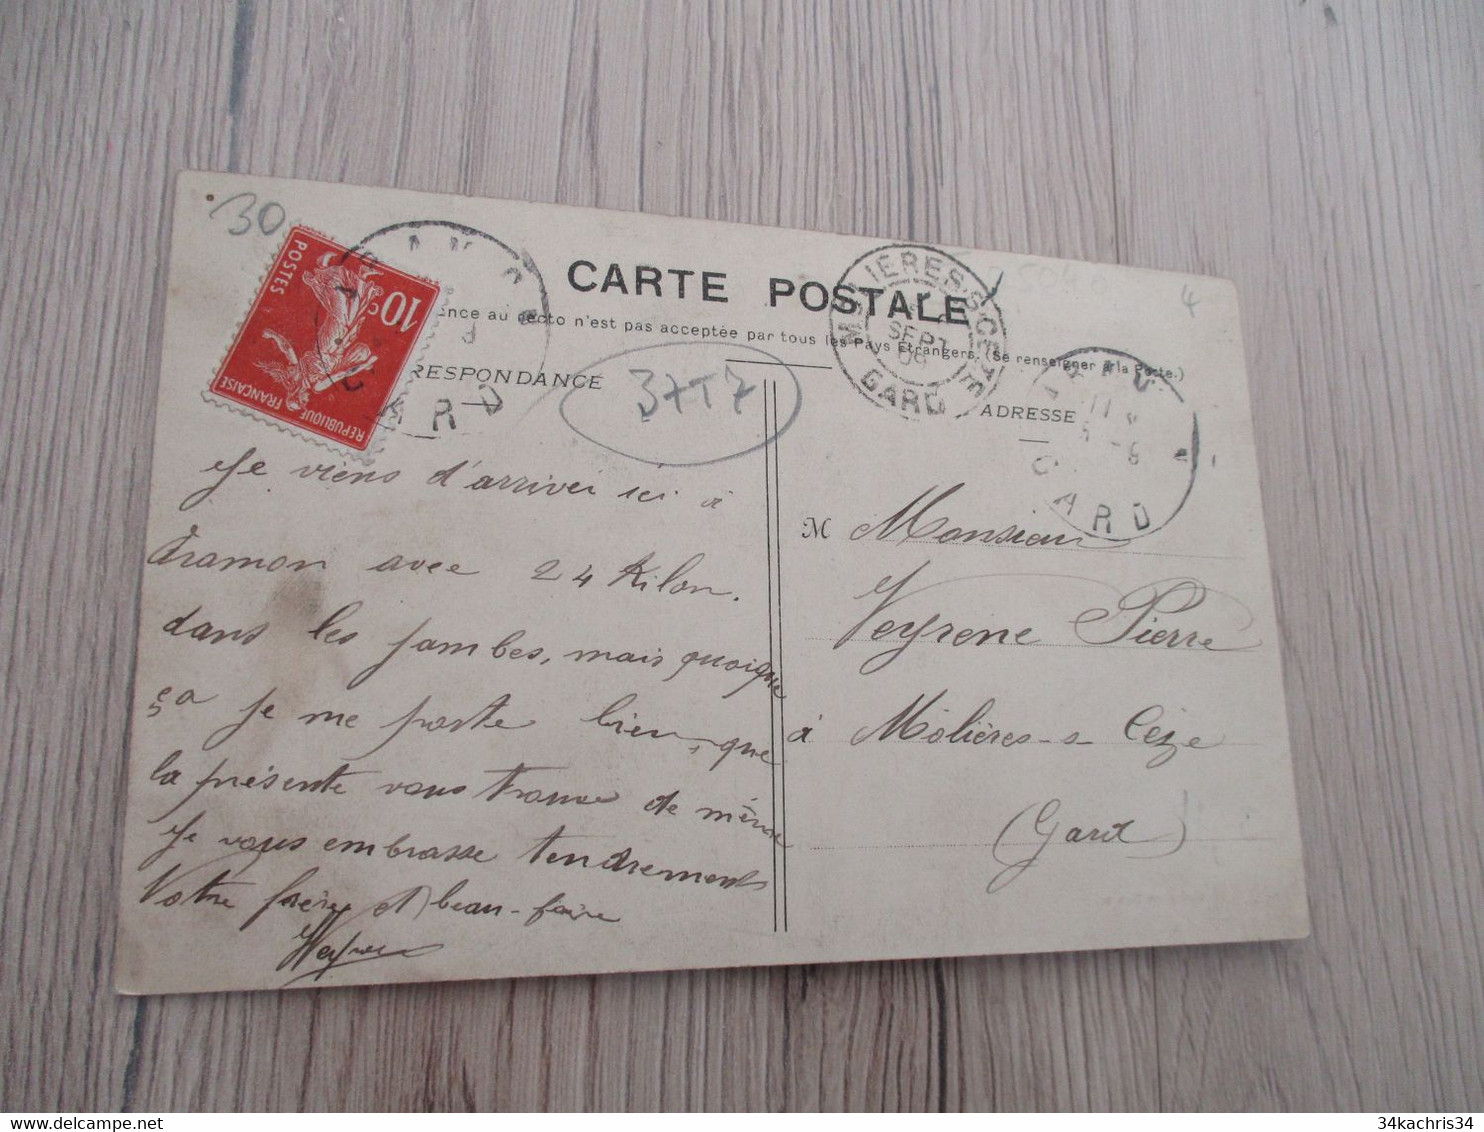 30
POSTES
10c
REPUBLIQUE FRANÇAISE
CARTE POSTALE
ence au recto n'est pas acceptée par tous les Pays Etrangers. (Se renseigner à la Poste.)
RESPONDANCE
37T7
ADRESSE
4
MOLIERES-S-CEZE
SEPT
09
GARD
ARAMON
GARD
GARD
Je viens d'arriver ici à
Aramon avec 24 Kilom.
dans les jambes, mais quoique
ça je me porte bien, que
la présente vous trouve de même
Je vous embrasse tendrement
Votre frère et beau-faire
Veyrene
M Monsieur
Veyrene Pierre
à Molières-s-Cèze
(Gard)
34kachris34